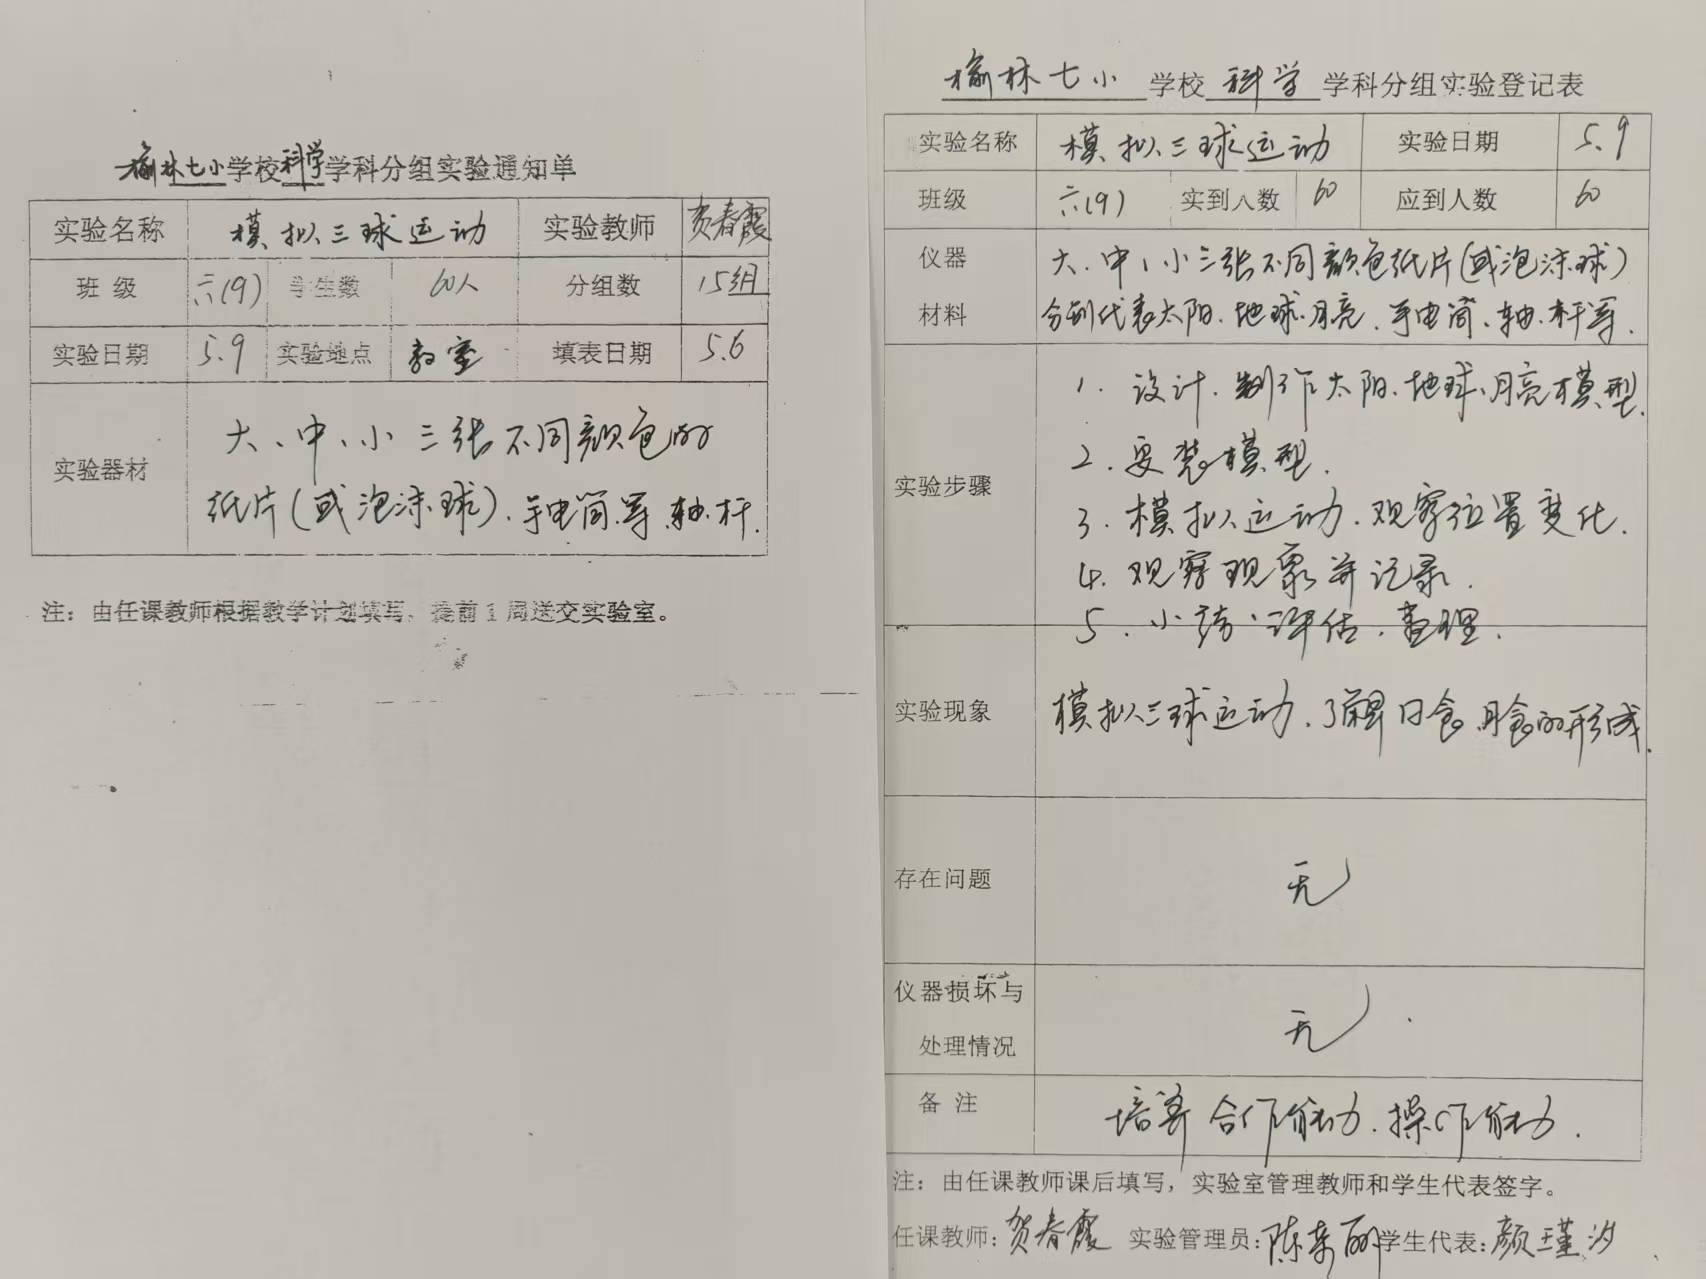 榆林七小学校科学学科分组实验通知单
实验名称 模拟三球运动 实验教师 贺春霞
班 级 六(9) 学生数 60人 分组数 15组
实验日期 5.9 实验地点 教室 填表日期 5.6
实验器材 大、中、小三张不同颜色的
纸片(或泡沫球)、手电筒等、轴、杆.
注：由任课教师根据教学计划填写，提前1周送交实验室。
榆林七小 学校 科学 学科分组实验登记表
实验名称 模拟三球运动 实验日期 5.9
班级 六(9) 实到人数 60 应到人数 60
仪器 大、中、小三张不同颜色纸片(或泡沫球)
材料 分别代表太阳、地球、月亮、手电筒、轴、杆等.
实验步骤
1. 设计、制作太阳、地球、月亮模型.
2. 安装模型.
3. 模拟运动、观察位置变化.
4. 观察现象并记录.
5. 小结、评估、整理.
实验现象 模拟三球运动、了解日食、月食的形成.
存在问题 无
仪器损坏与
处理情况 无
备 注 培养合作能力、操作能力.
注：由任课教师课后填写，实验室管理教师和学生代表签字。
任课教师: 贺春霞 实验管理员: 陈 丽 学生代表: 颜瑾汐